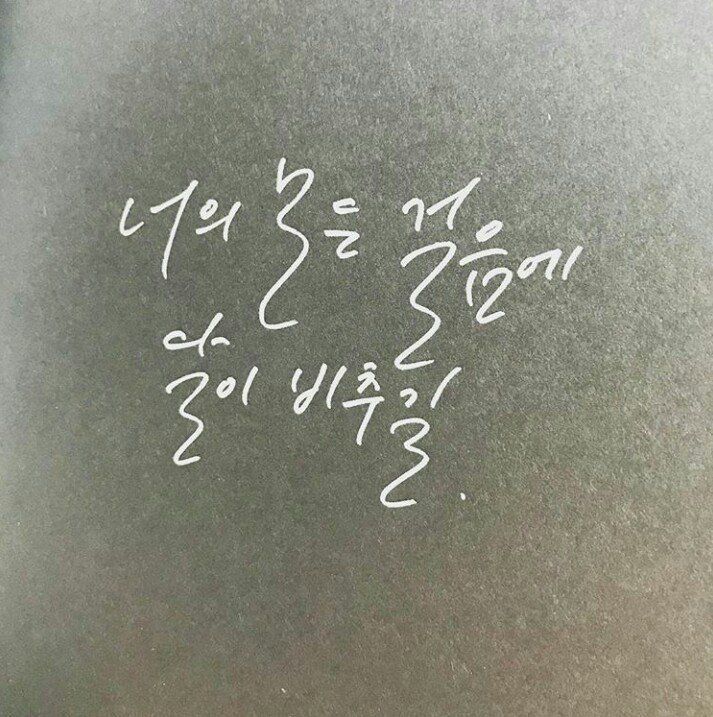 너의 모든 걸음에
달이 비추길.